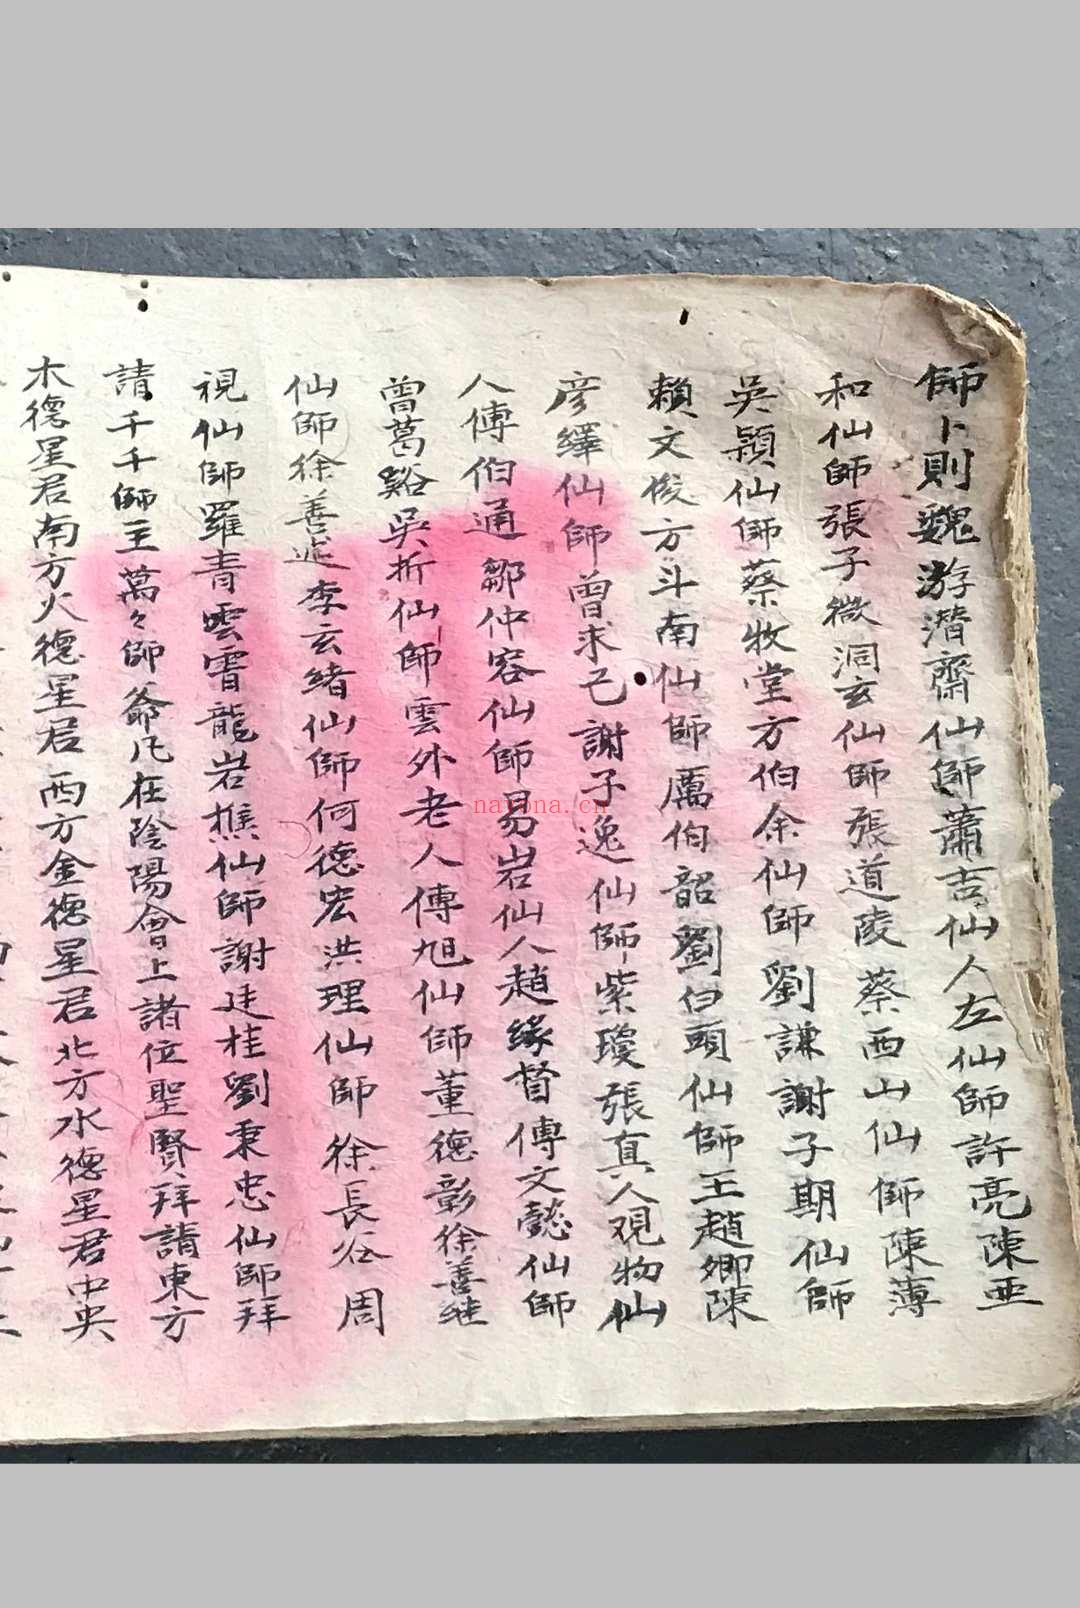 師卜則巍游潛齋仙師蕭吉仙人左仙師許亮陳亜
和仙師張子微洞玄仙師張道陵蔡西山仙師陳薄
吳頴仙師蔡牧堂方伯余仙師劉謙謝子期仙師
賴文俊方斗南仙師厲伯韶劉白頭仙師王趙卿陳
彦繹仙師曾求己謝子逸仙師紫瓊張真人观物仙
人傅伯通鄒仲容仙師易岩仙人趙緣督傅文懿仙師
曾葛谿吳折仙師雲外老人傅旭仙師董德彰徐善继
仙師徐善述李玄緒仙師何德宏洪理仙師徐長谷周
視仙師羅青雲霄龍岩樵仙師謝廷桂劉秉忠仙師拜
請千千師主萬々師爺凡在陰陽會上諸位聖賢拜請東方
木德星君南方火德星君西方金德星君北方水德星君中央
nayona.cn